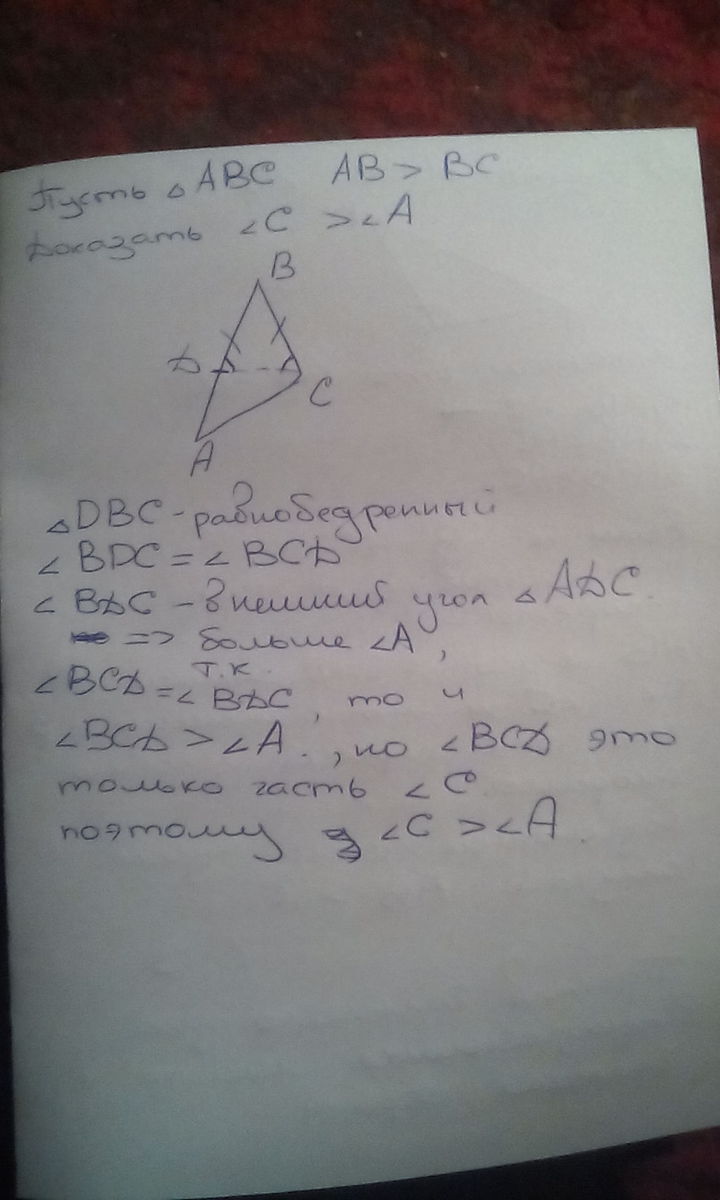 Пусть △ ABC AB > BC
Доказать ∠C > ∠A
B
D
C
A
△DBC - равнобедренный
∠BDC = ∠BCD
∠BDC - внешний угол △ADC.
=> больше ∠A,
т.к.
∠BCD = ∠BDC, то и
∠BCD > ∠A., но ∠BCD это
только часть ∠C
поэтому ∠C > ∠A.